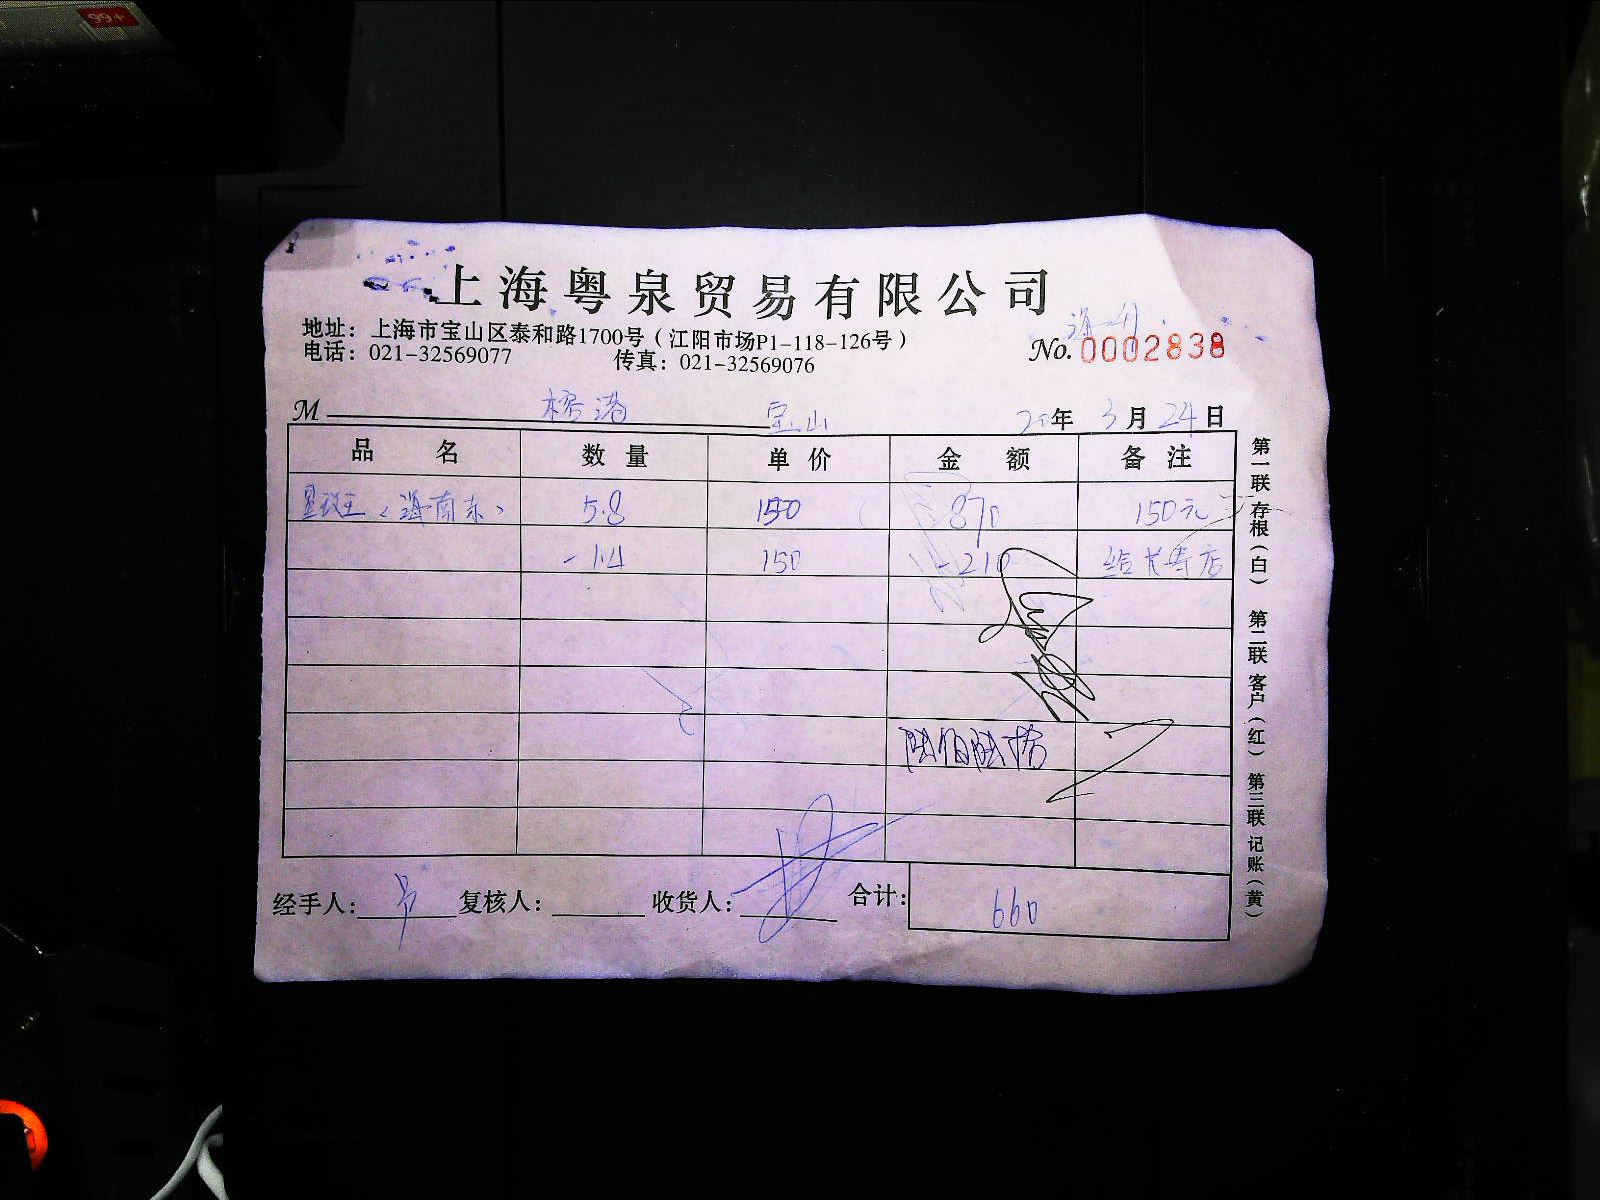 99+
上海粤泉贸易有限公司
地址：上海市宝山区泰和路1700号（江阳市场P1-118-126号）
电话：021-32569077 传真：021-32569076
No. 0002838
M 榕港 宝山 20年 3月 24日
品名 数量 单价 金额 备注
星斑王（海南东） 5.8 150 870 150元
-1.4 150 -210 给长寿店
陆佰陆拾
经手人： 复核人： 收货人： 合计： 660
第一联 存根（白） 第二联 客户（红） 第三联 记账（黄）